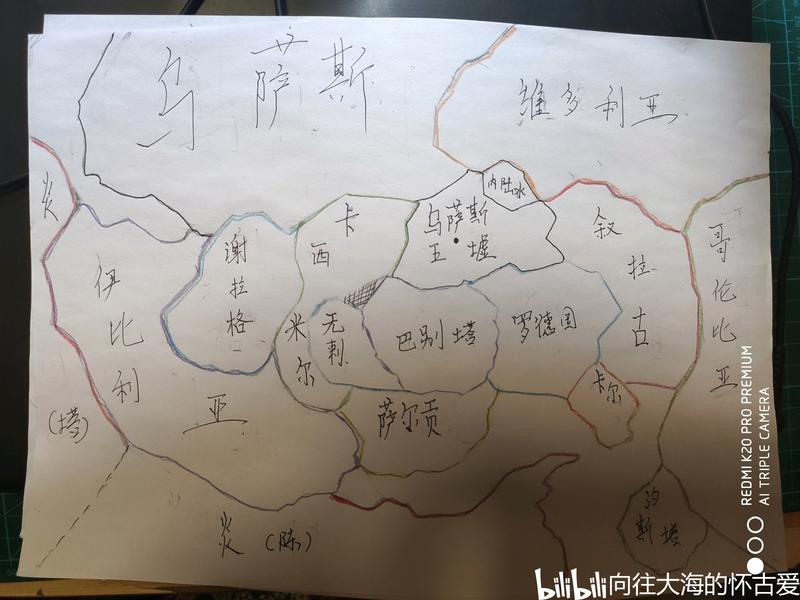 乌萨斯
维多利亚
炎
内陆水
卡西米尔
乌萨斯
王墟
叙拉古
哥伦比亚
谢拉格
伊比利亚
无剌
巴别塔
罗德园
卡尔
萨尔贡
(塔)
炎(陈)
汐斯塔
REDMI K20 PRO PREMIUM
AI TRIPLE CAMERA
bilibili 向往大海的怀古爱